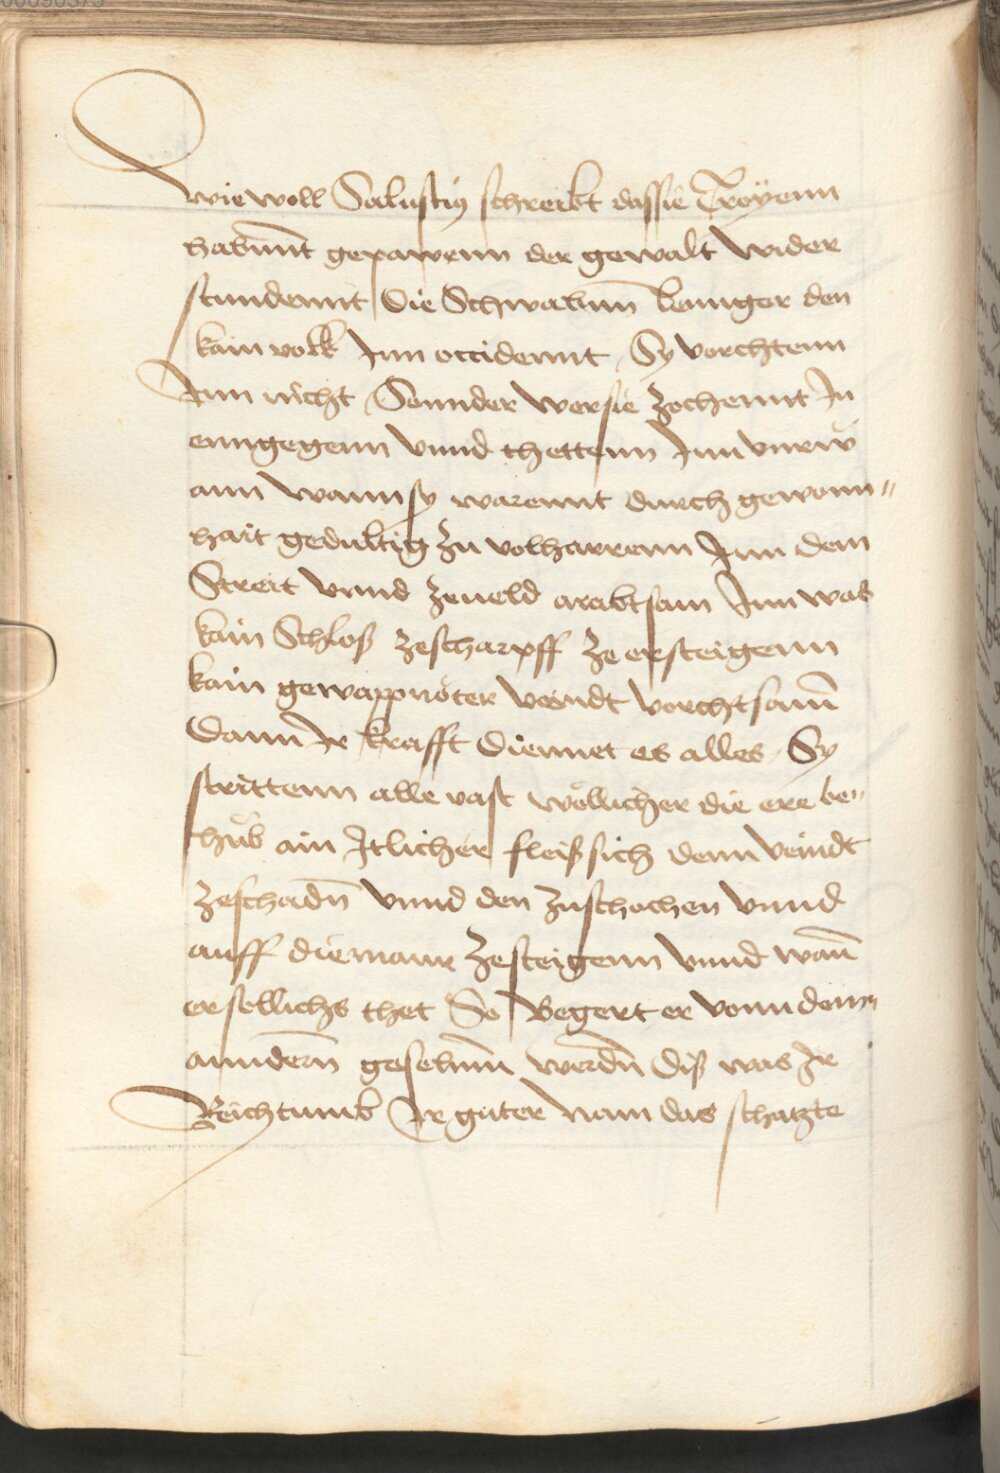 wiewoll Salustiꝯ schreibt dassie Troÿenn
habunnt gepawenn der gewalt wider
stundennt Die Schwabenn lennger den
kain volk Inn occidennt Sy vorchtenn
Inn nicht Sonnder wersie zochennt In
enngegenn vnnd thettenn Inn vnrw
ann wann sy warennt durch gewonn„
hait gedultig zu volharrenn Inn dem
Streit vnnd zeueld arabtsam Inn was
kain Schloß zescharpff ze ersteigenn
kain gewappnöter veindt vorchtsam
Dann Ir krafft diennet es alles Sy
strittenn alle vast wöllicher die ere be„
hüb ain Itlicher fleiß sich denn veindt
zeschadn vnnd den zuschochen vnnd
auff diemaur zesteigenn vnnd wan
ersollichs thet So begert er vonn denn„
anndern gesehenn werdn Diß was Ir
Reichtumb Ir guter nam das schatzte